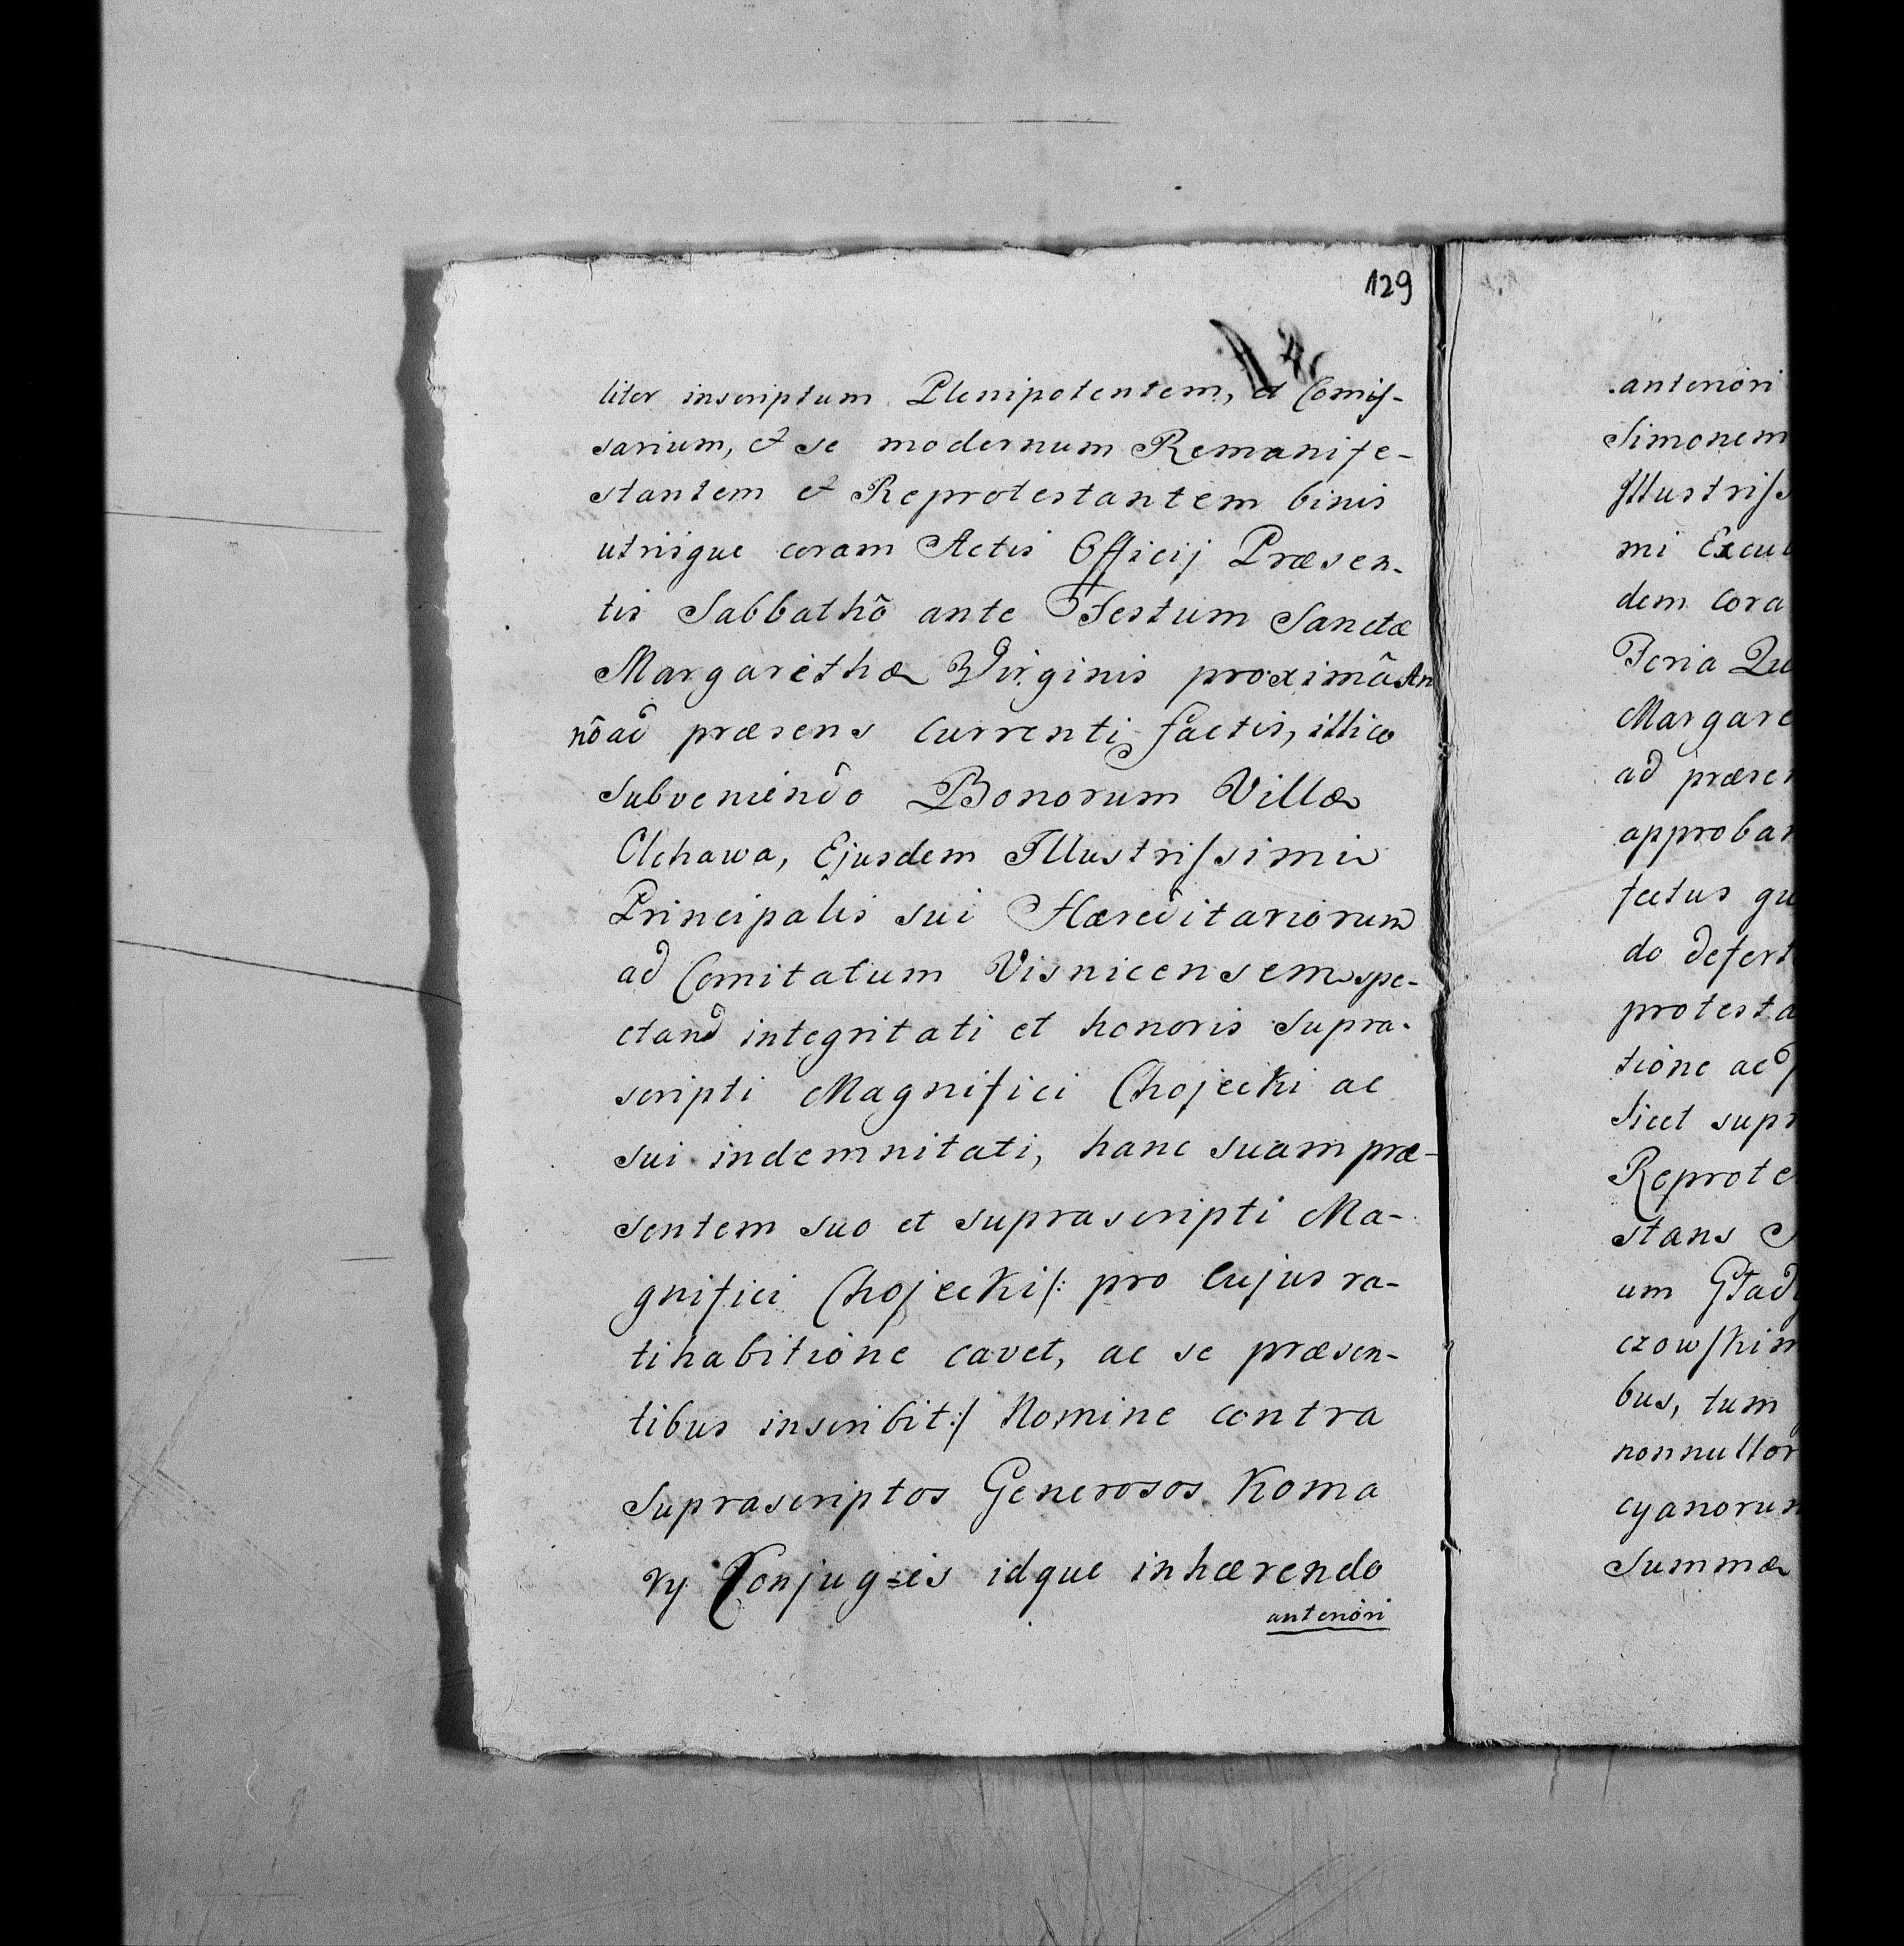 129
liter inscriptum Plenipotentem, et Comis-
sarium, et se modernum Remanife-
stantem et Reprotestantem binis
utrisque coram Actis Officij Præsen-
tis Sabbathô ante Festum Sanctæ
Margarethæ Virginis proximô An
nô ad præsens currenti factis, illico
subveniendo Bonorum Villæ
Olchawa, Ejusdem Illustrissimi
Principalis sui Hæreditariorum
ad Comitatum Visnicensem spe-
ctand integritati et honoris supra-
scripti Magnifici Chojecki ac
sui indemnitati, hanc suam præ-
sentem suo et suprascripti Ma-
gnifici Chojecki /: pro cujus ra-
tihabitione cavet, ac se præsen-
tibus inscribit :/ Nomine contra
suprascriptos Generosos Koma
ry Conjug=es idque inhærendo
anteriori
anteriori
Simonem
Illustriss
mi Excul
dem cora
Feria Qu
Margare
ad præsen
approban
fectus qu
do defert
protesta
tione ac
licet supr
Reprote
stans
um Gład
czowskim
bus, tum
nonnullor
cyanorum
Summæ